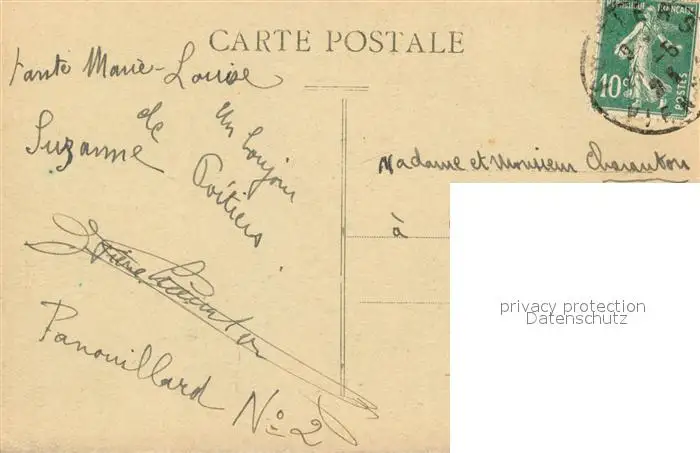 CARTE POSTALE
tante Marie-Louise
Suzanne
de
un bonjour
Poitiers
Panouillard N° 2
Madame et Monsieur
à
REPUBLIQUE FRANÇAISE
10c
POSTES
privacy protection
Datenschutz